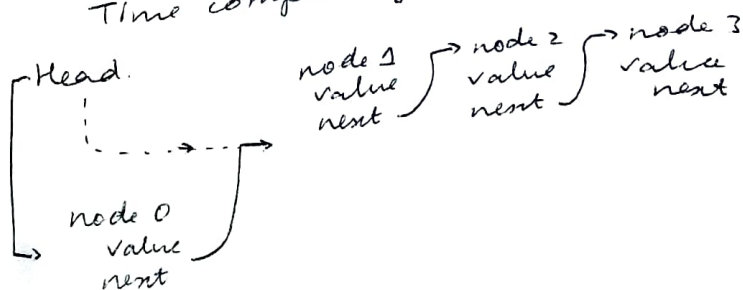 Time comp
Head.
node 1
value
next
node 2
value
next
node 3
value
next
node 0
value
next